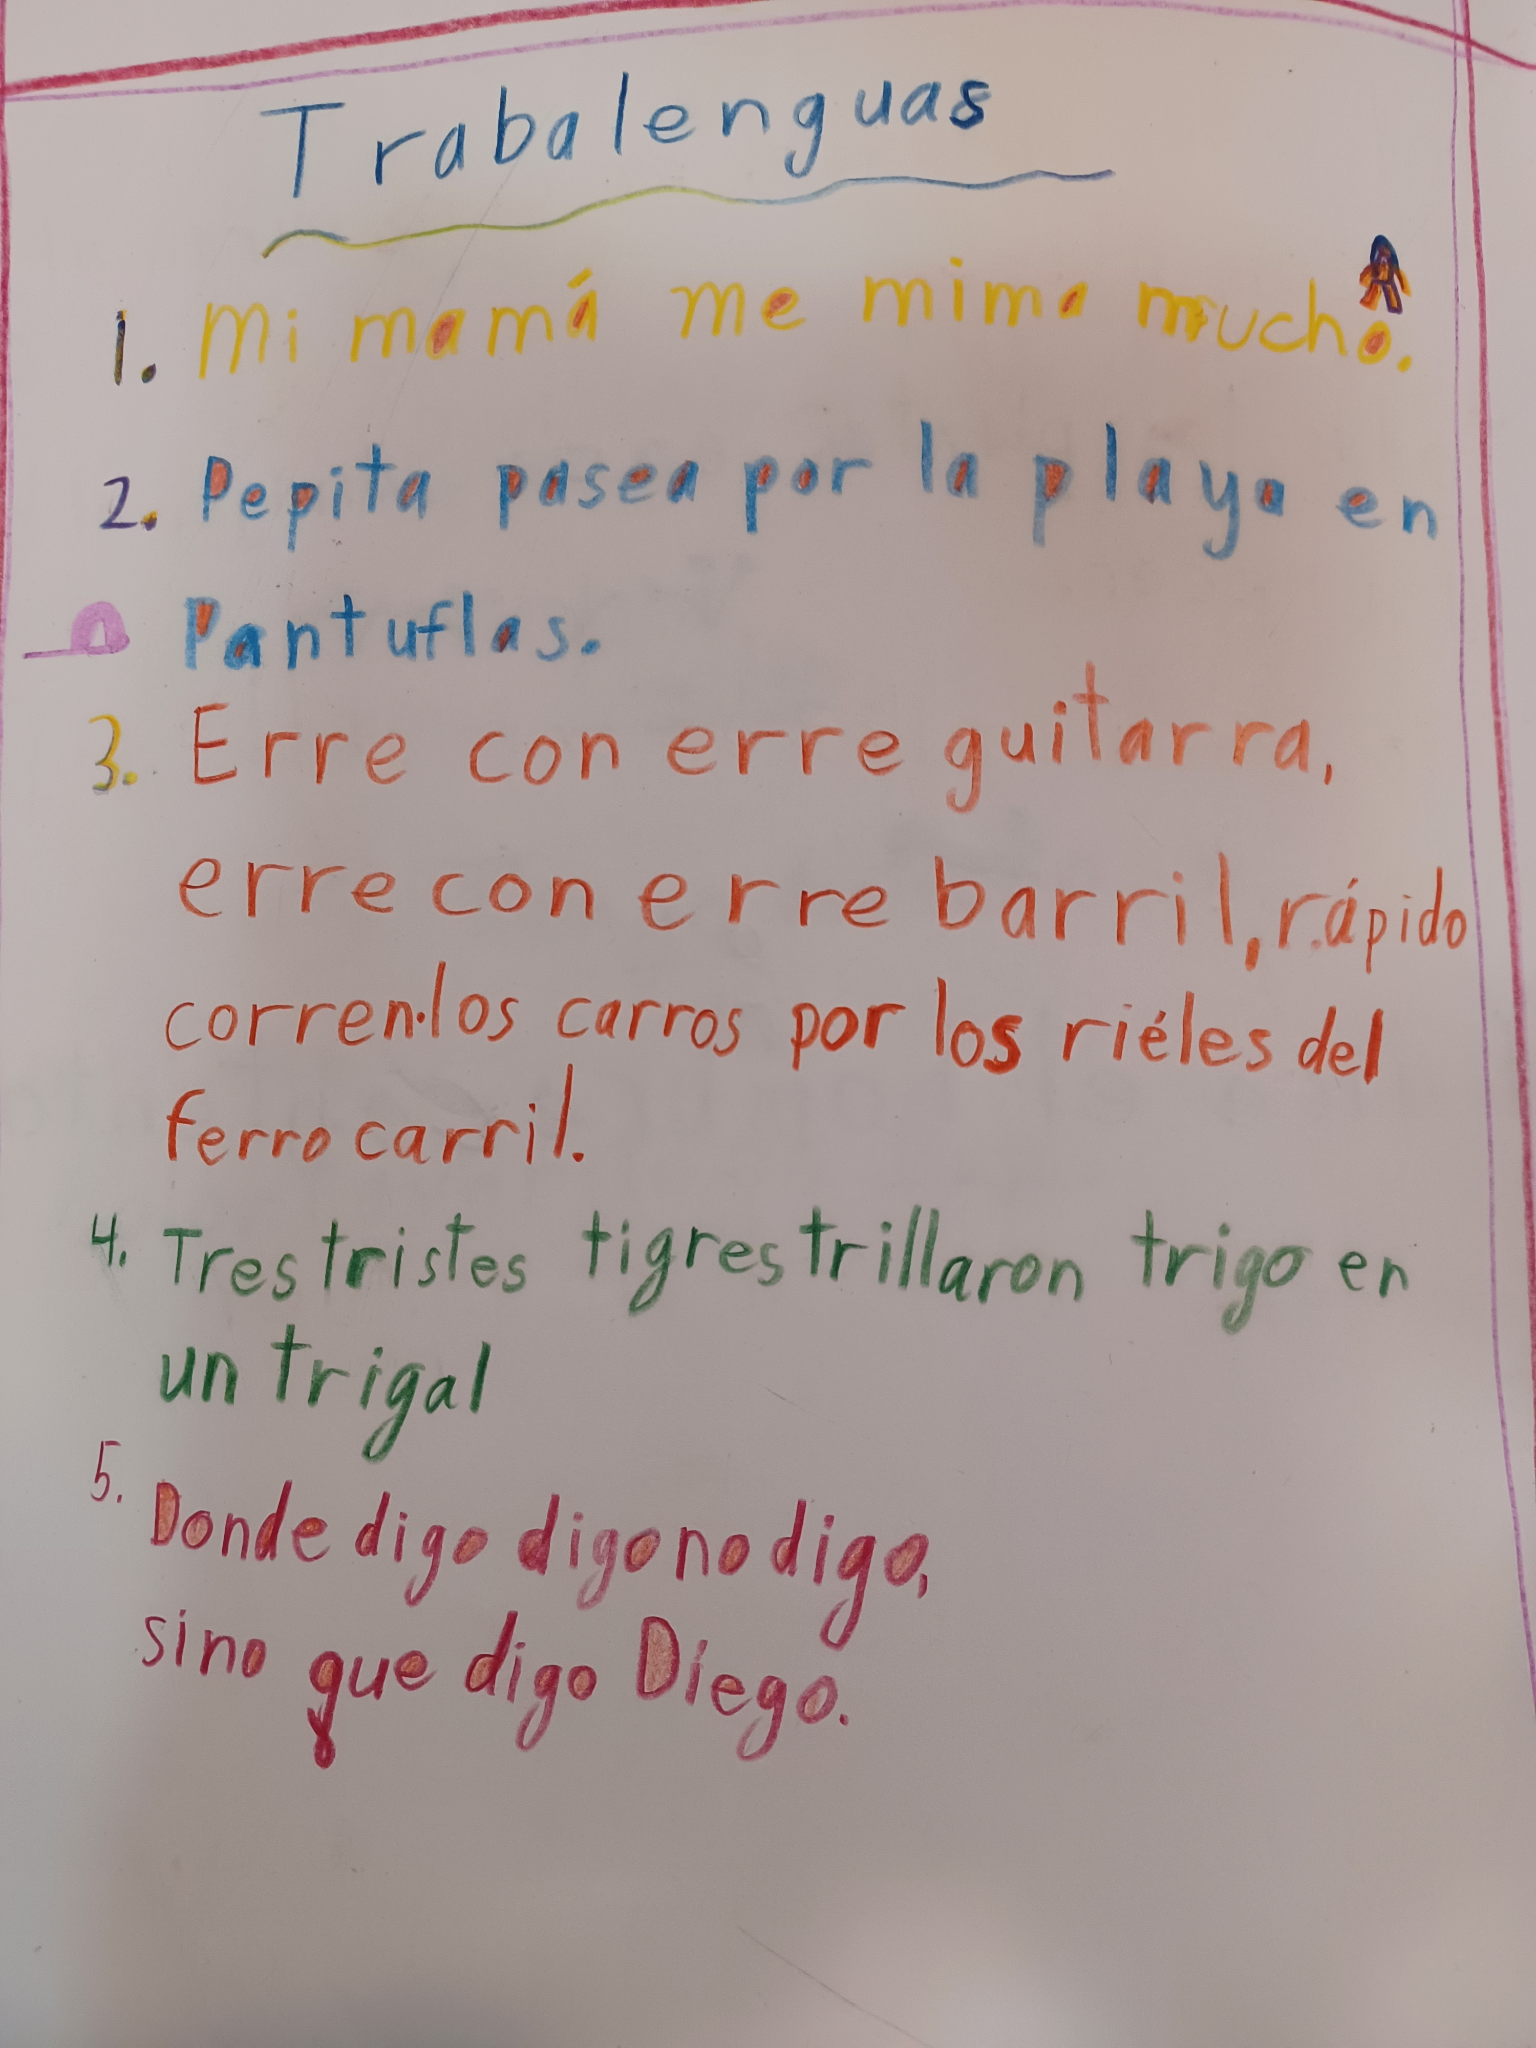 Trabalenguas
1. Mi mamá me mima mucho.
2. Pepita pasea por la playa en
Pantuflas.
3. Erre con erre guitarra,
erre con erre barril, rápido
corren los carros por los riéles del
ferrocarril.
4. Tres tristes tigres trillaron trigo en
un trigal
5. Donde digo digo no digo,
sino que digo Diego.